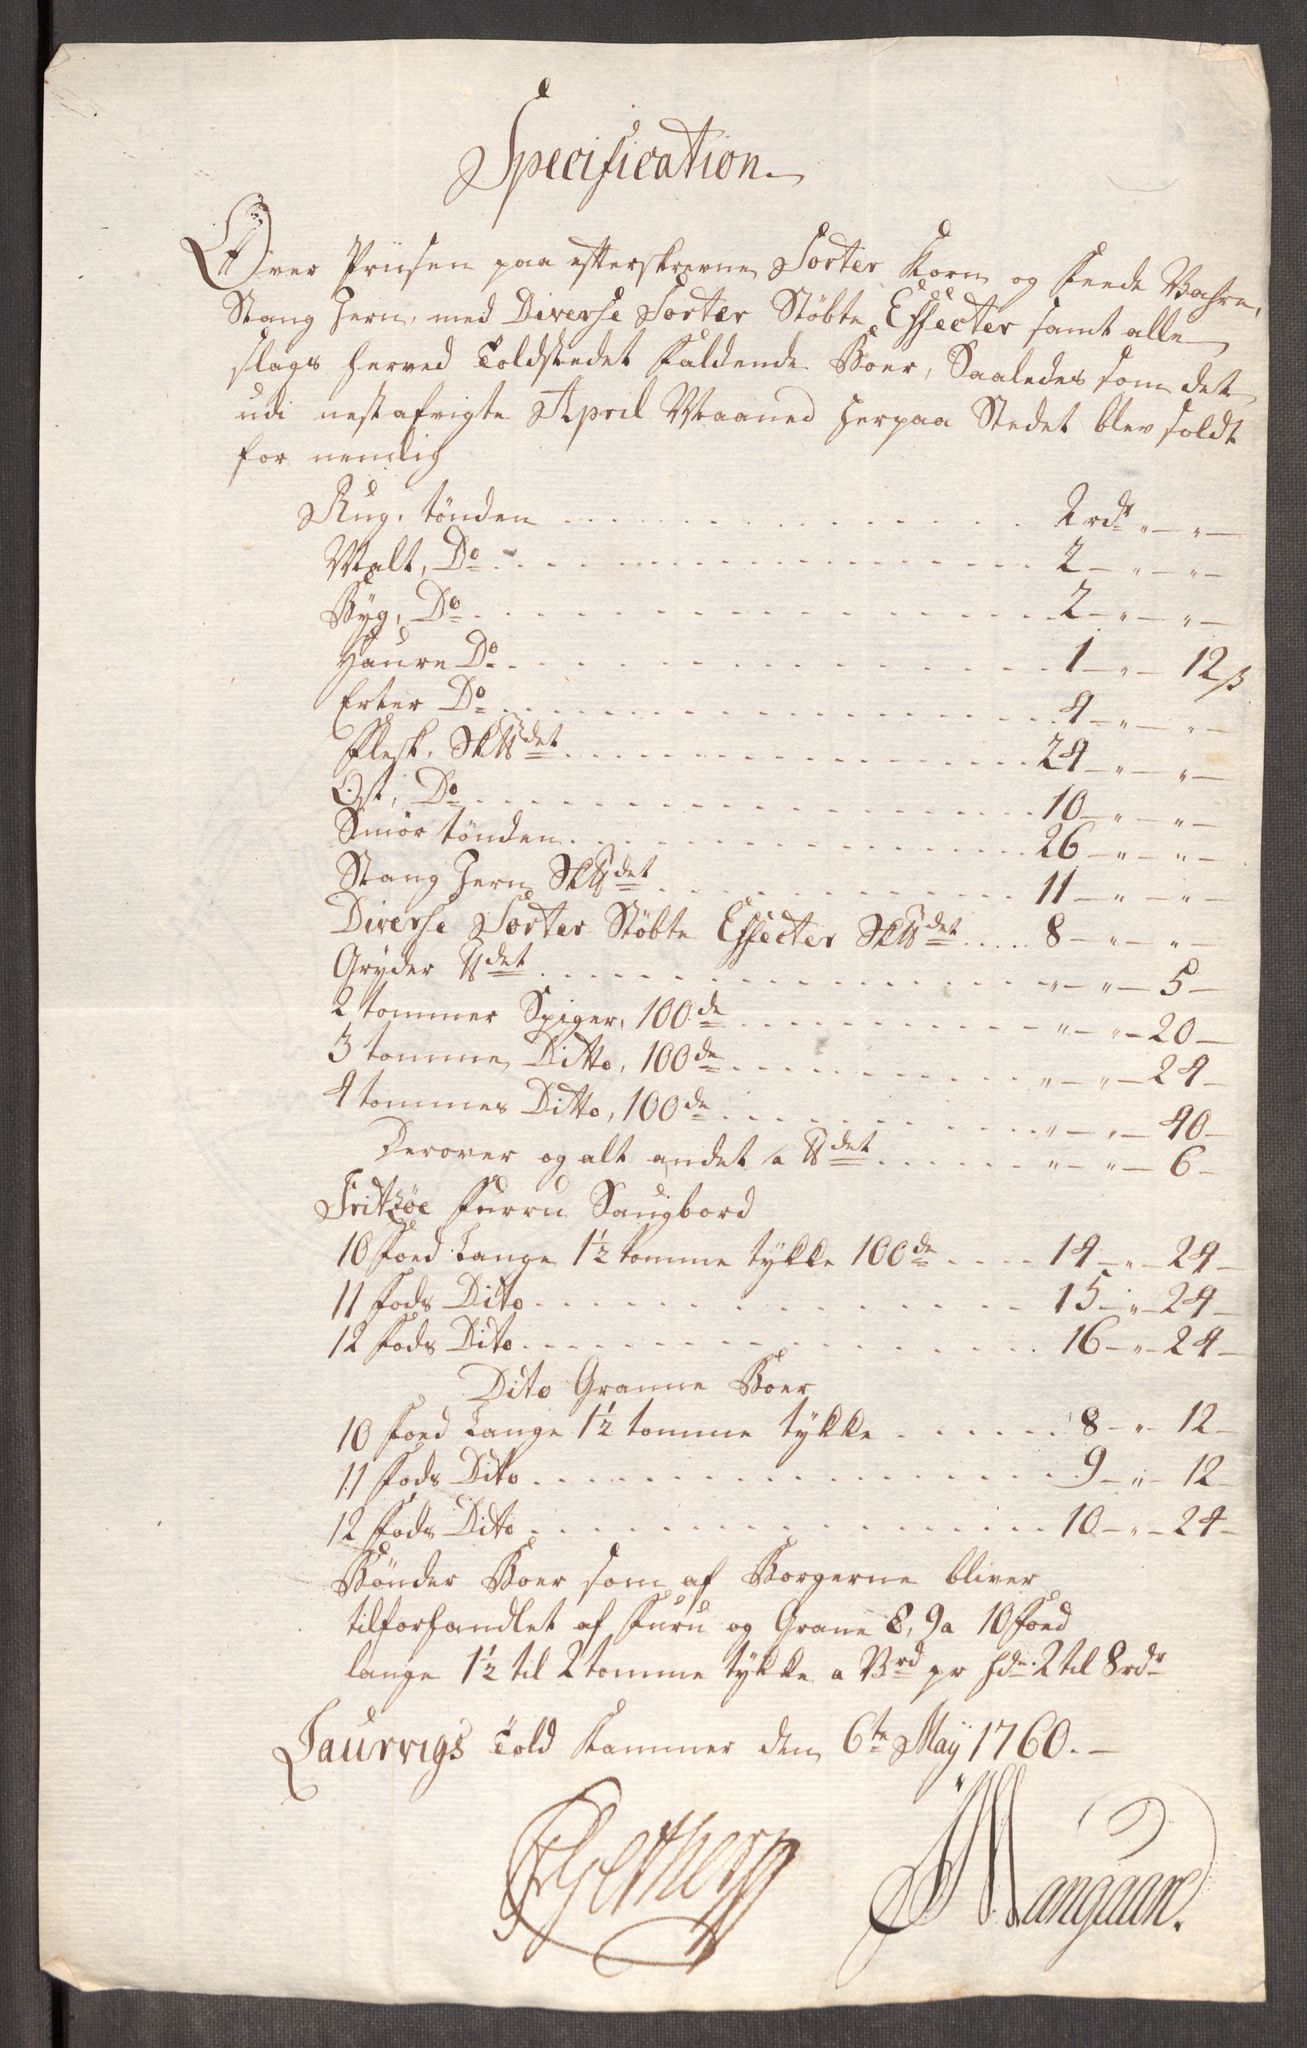 Specification
Over Prisen paa efterskrevne Sorter Korn og Feede Vahre,
Stang Jern, med Diverse Sorter Støbte Effecter samt alle
slags herved Toldstedet faldende Boer, Saaledes som det
udi nestafvigte April Maaned herpaa Stedet blev soldt
for nemlig
Rug, tønden 2 rdr " "
Malt, Do 2 " "
Byg, Do 2 " "
Haure Do 1 " 12 ß
Erter Do 4 " "
Flesk, Sk℔det 24 " "
Ost, Do 10 " "
Smør tønden 26 " "
Stang Jern Sk℔det 11 " "
Diverse Sorter Støbte Effecter Sk℔det 8 " "
Gryder ℔det " " 5
2 tommer Spiger, 100de " " 20
3 tomme Ditto, 100de " " 24
4 tommes Ditto, 100de " " 40
Derover og alt andet a ℔det " " 6
Fritzøe Furru Saugbord
10 Foed Lange 1½ tomme tykke 100de 14 " 24
11 Fods Dito 15 " 24
12 Fods Dito 16 " 24
Dito Granne Boer
10 Foed Lange 1½ tomme tykke 8 " 12
11 Fods Dito 9 " 12
12 Fods Dito 10 " 24
Bønder Boer som af Borgerne bliver
tilforhandlet af Furu og Grane 8, 9 a 10 Foed
lange 1½ til 2 tomme tykke a Brd pr hde 2 til 8 rdr
Laurvigs Told Kammer den 6te Maÿ 1760.
Mangaar.